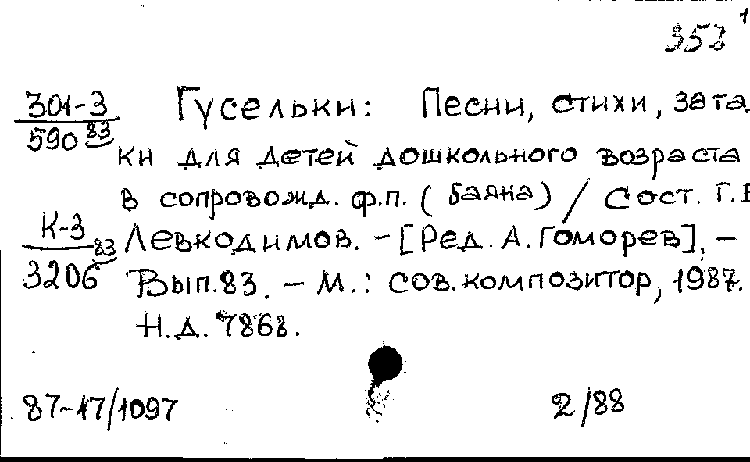 353 1
301-3 Гусельки: Песни, стихи, зага
590 83 ки для детей дошкольного возраста
в сопровожд. ф.п. (баяна) / Сост. Г.
К-3 83 Левкодимов. - [Ред. А. Гоморев]. -
3206 Вып. 83. - М.: Сов. композитор, 1987.
Н.д. 7868.
87-17/1097 2/88